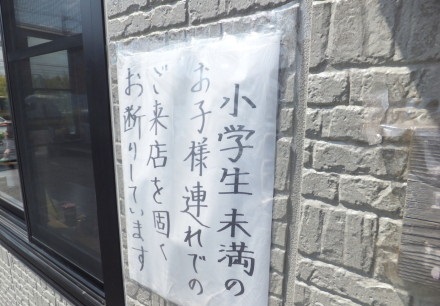 小学生未満の
お子様連れでの
ご来店を固く
お断りしています